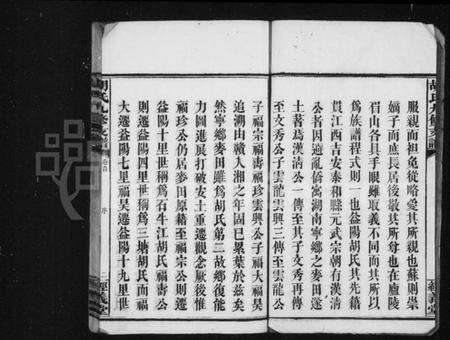 胡氏九修支譜
服親而袒免從略愛其所親也蘇則崇
嫡子而庶長居後敬其所尊也在廬陵
眉山各具手眼雖取義不同而其所以
爲族譜程式則一也益陽胡氏其先籍
貫江西吉安泰和縣元武宗朝有漢清
公者因適亂僑寓湖南寧鄉之麥田遂
土著爲漢清公一傳至其子文秀再傳
至文秀公子雲龍雲興三傳至雲龍公
經義堂
胡氏九修支譜
卷首
序
子福宗福壽福珍雲興公子福大福昊
追溯由贛入湘之年固已累葉於茲矣
然寧鄉麥田雖爲胡氏第二故鄉復能
力圖進展打破安土重遷觀念厥後惟
福珍公仍居麥田原籍至福宗公則遷
益陽十里世稱爲石牛江胡氏福壽公
則遷益陽四里世稱爲三塘胡氏而福
大遷益陽七里福昊遷益陽十九里世
經義堂